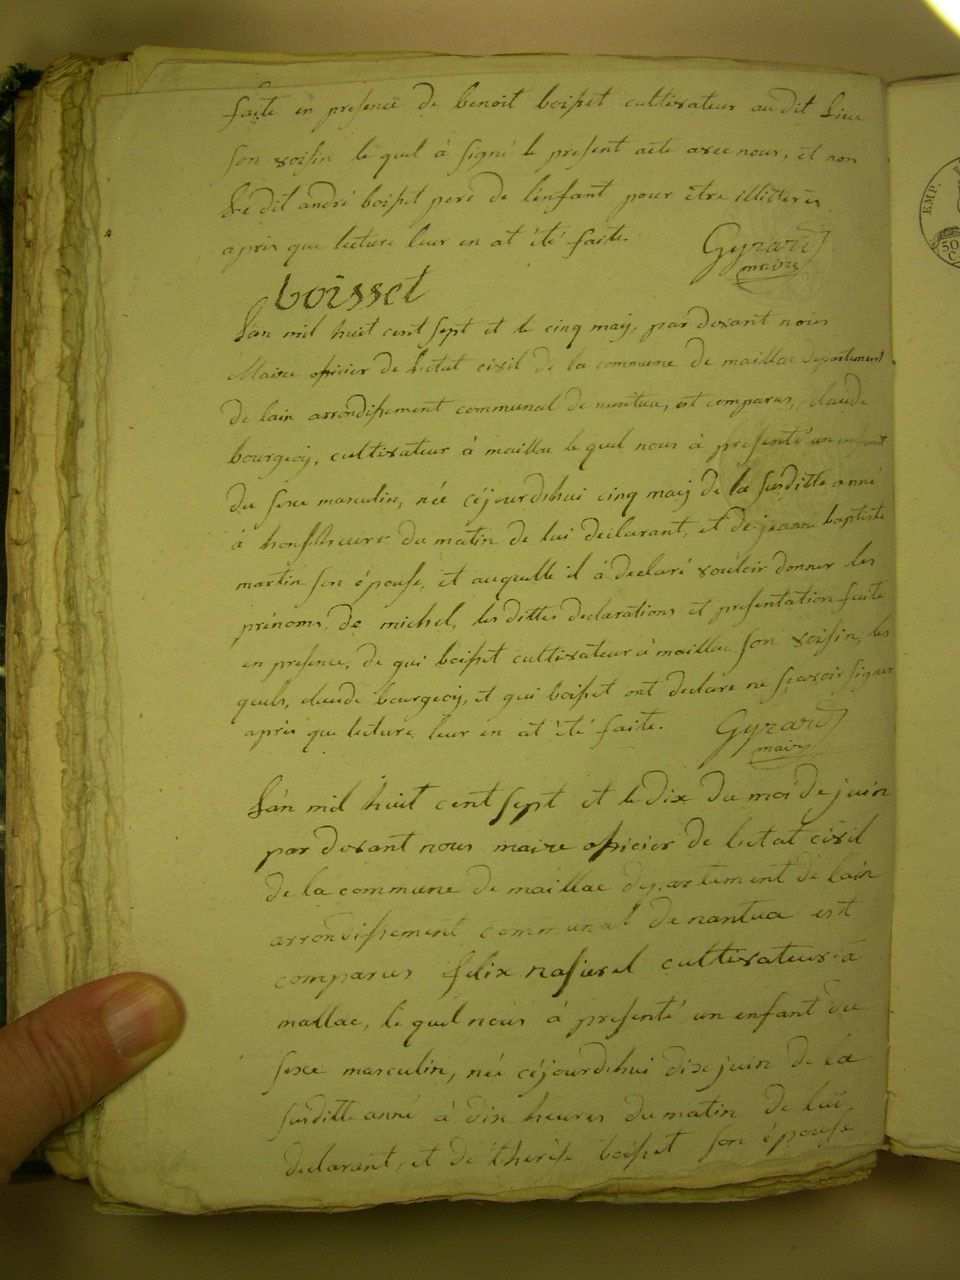 faite en presence de benoit boisset cultivateur audit lieu
son voisin le quel à signé le present acte avec nous, et non
le dit andré boisset pere de l'enfant pour être illitterés
apris que lecture leur en at été faite.
Gyrard
maire
boisset
Lan mil huit cent sept et le cinq maij, par devant nous
Maire oficier de l'etat civil de la commune de maillac departement
de lain arrondissement communal de nantua, est comparus, claude
bourgeoij, cultivateur à maillac le quel nous à presenté un enfant
du sexe masculin, née céjourdehui cinq maij de la susditte anné
à heures du matin de lui declarant, et de jeanne baptiste
martin son épouse, et auquelle il à declaré vouloir donner les
prénoms, de michel, les dittes declarations et presentation faite
en presence, de gui boisset cultivateur à maillac son voisin, les
quels, claude bourgeoij, et gui boisset ont declare ne scavoir signer
apris que lecture leur en at été faite.
Gyrard
maire
Lan mil huit cent sept et le dix du moi de juin
par devant nous maire oficier de letat civil
de la commune de maillac departement de lain
arrondissement communal de nantua est
comparus felix cultivateur à
mallac, le quel nous à presenté un enfant du
sexe masculin, née céjourdehui dix juin de la
susditte anné à dix heures du matin de lui
declarant, et de therese boisset son épouse
EMP.
50